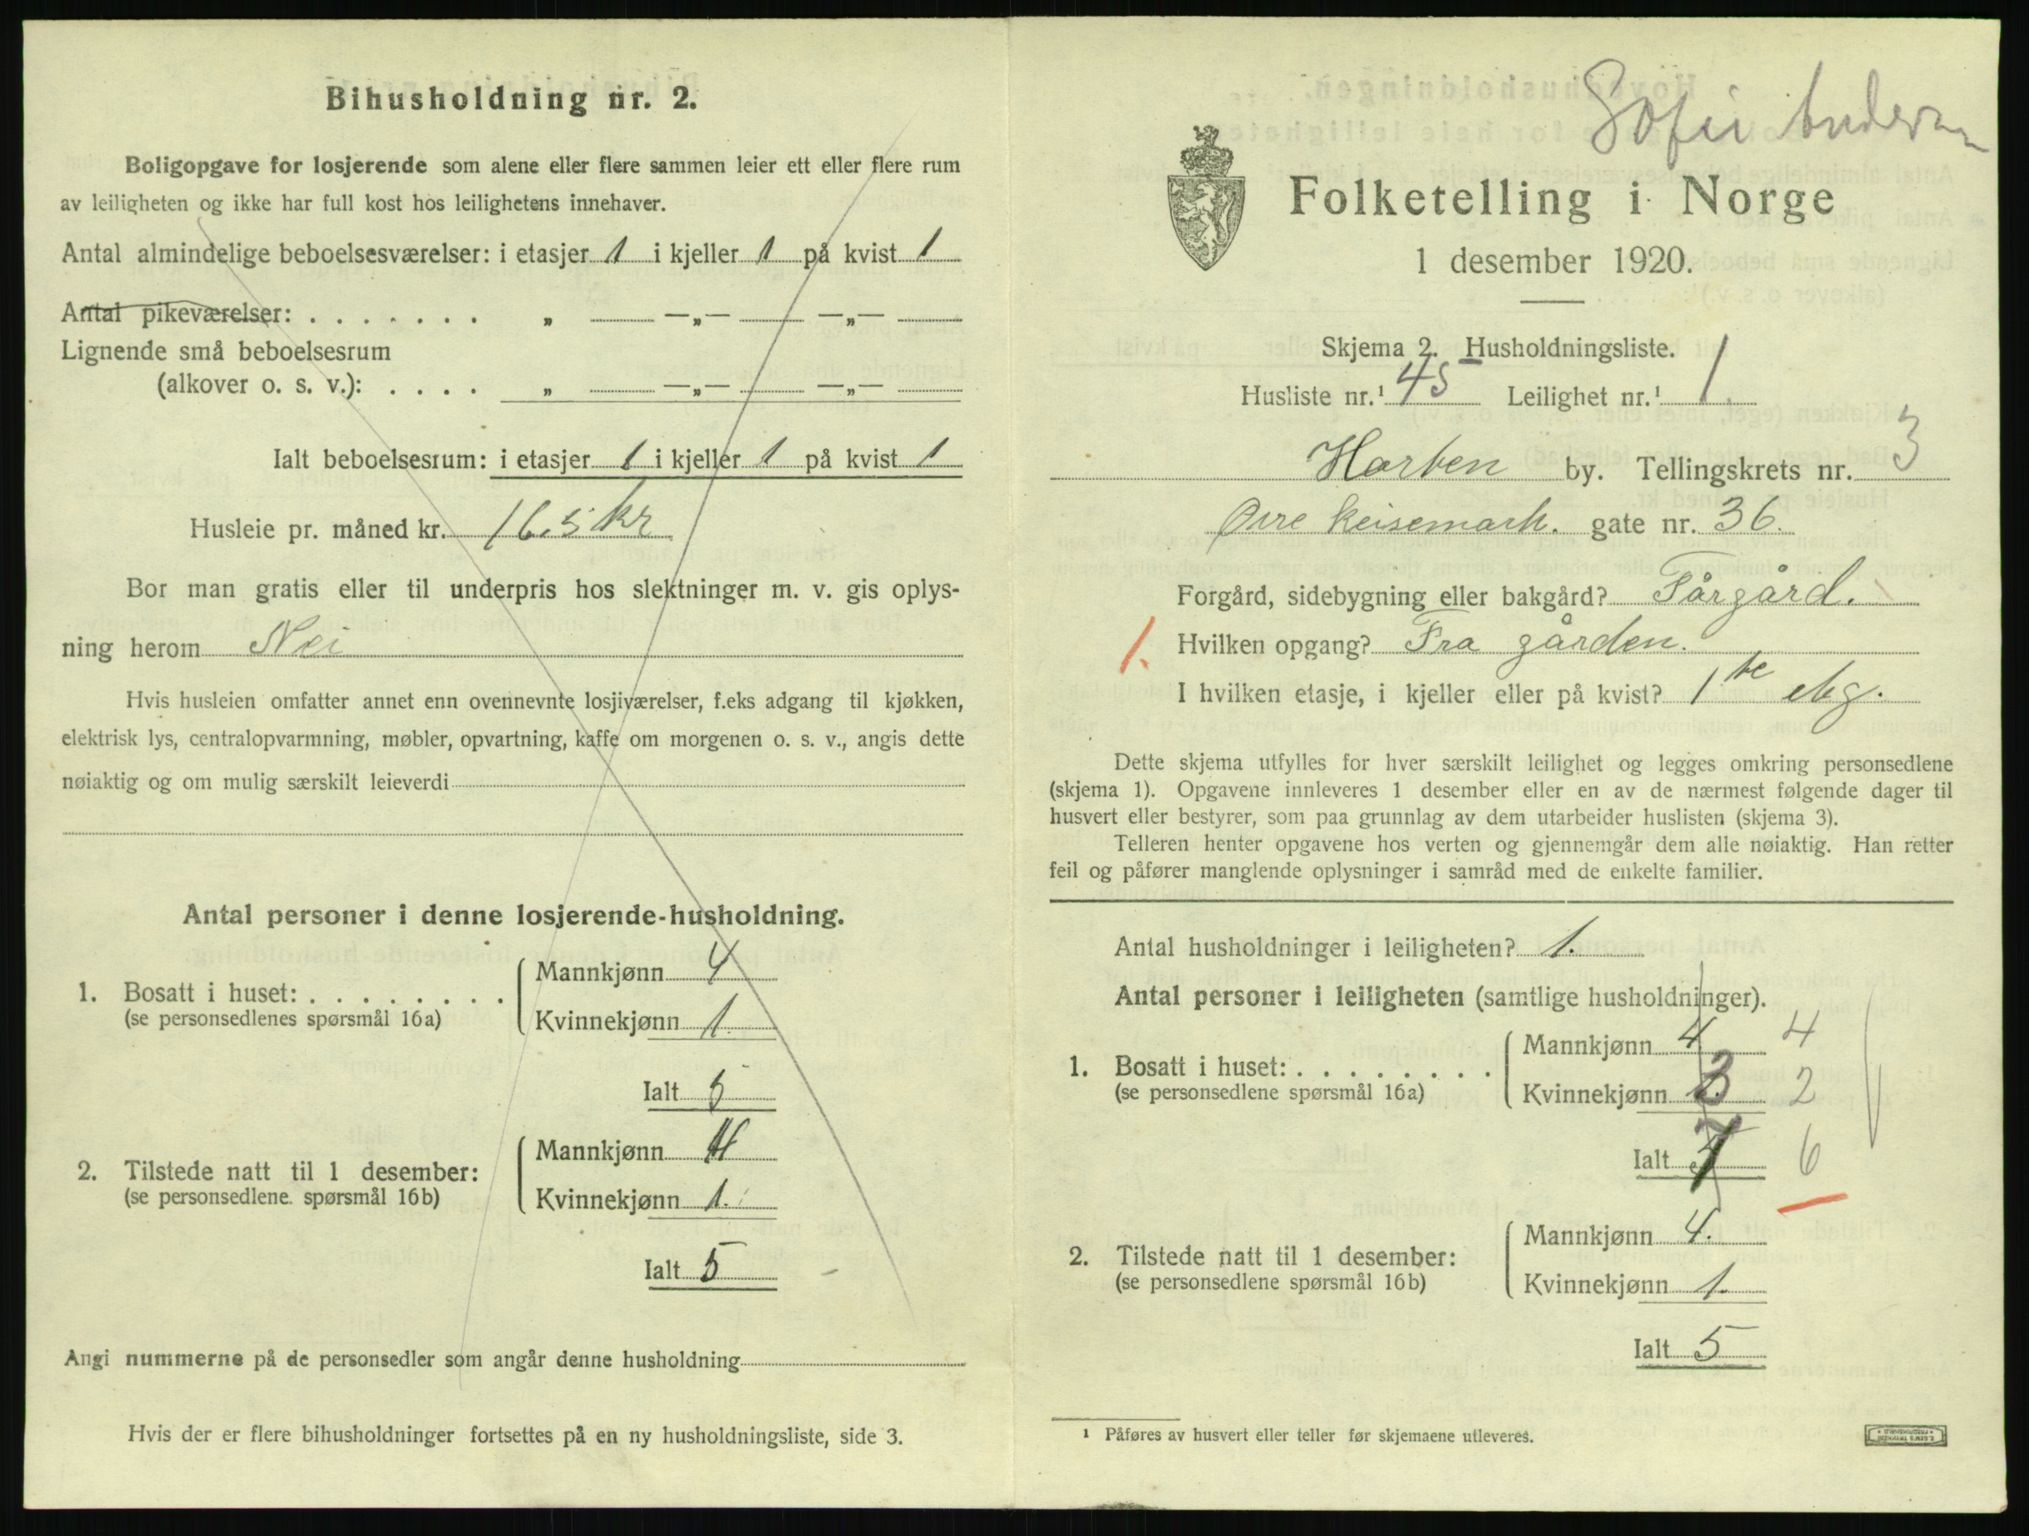 Bihusholdning nr. 2.
Boligopgave for losjerende som alene eller flere sammen leier ett eller flere rum
av leiligheten og ikke har full kost hos leilighetens innehaver.
Antal almindelige beboelsesværelser: i etasjer 1 i kjeller 1 på kvist 1
Antal pikeværelser: . . . . . . . „ —„— —„—
Lignende små beboelsesrum
(alkover o. s. v.): . . . . „ —„— —„—
Ialt beboelsesrum: i etasjer 1 i kjeller 1 på kvist 1
Husleie pr. måned kr. 16.5 kr
Bor man gratis eller til underpris hos slektninger m. v. gis oplys-
ning herom Nei
Hvis husleien omfatter annet enn ovennevnte losjiværelser, f.eks adgang til kjøkken,
elektrisk lys, centralopvarmning, møbler, opvartning, kaffe om morgenen o. s. v., angis dette
nøiaktig og om mulig særskilt leieverdi
Antal personer i denne losjerende-husholdning.
Mannkjønn 4
1. Bosatt i huset: . . . . . . . .
(se personsedlenes spørsmål 16a)
Kvinnekjønn 1.
Ialt 5
Mannkjønn 4
2. Tilstede natt til 1 desember:
(se personsedlene. spørsmål 16b)
Kvinnekjønn 1.
Ialt 5
Angi nummerne på de personsedler som angår denne husholdning
Hvis der er flere bihusholdninger fortsettes på en ny husholdningsliste, side 3.
Sofie Andersen
Folketelling i Norge
1 desember 1920.
Skjema 2. Husholdningsliste.
Husliste nr.¹ 45 Leilighet nr.¹ 1
Horten by. Tellingskrets nr. 3
Øvre Keisemark. gate nr. 36.
Forgård, sidebygning eller bakgård? Fårgård.
1. Hvilken opgang? Fra gården.
I hvilken etasje, i kjeller eller på kvist? 1ste etg.
Dette skjema utfylles for hver særskilt leilighet og legges omkring personsedlene
(skjema 1). Opgavene innleveres 1 desember eller en av de nærmest følgende dager til
husvert eller bestyrer, som paa grunnlag av dem utarbeider huslisten (skjema 3).
Telleren henter opgavene hos verten og gjennemgår dem alle nøiaktig. Han retter
feil og påfører manglende oplysninger i samråd med de enkelte familier.
Antal husholdninger i leiligheten? 1.
Antal personer i leiligheten (samtlige husholdninger).
Mannkjønn 4 4
1. Bosatt i huset: . . . . . . . .
(se personsedlene spørsmål 16a)
Kvinnekjønn 3 2
Ialt 7 6
Mannkjønn 4.
2. Tilstede natt til 1 desember:
(se personsedlene spørsmål 16b)
Kvinnekjønn 1.
Ialt 5
¹ Påføres av husvert eller teller før skjemaene utleveres.